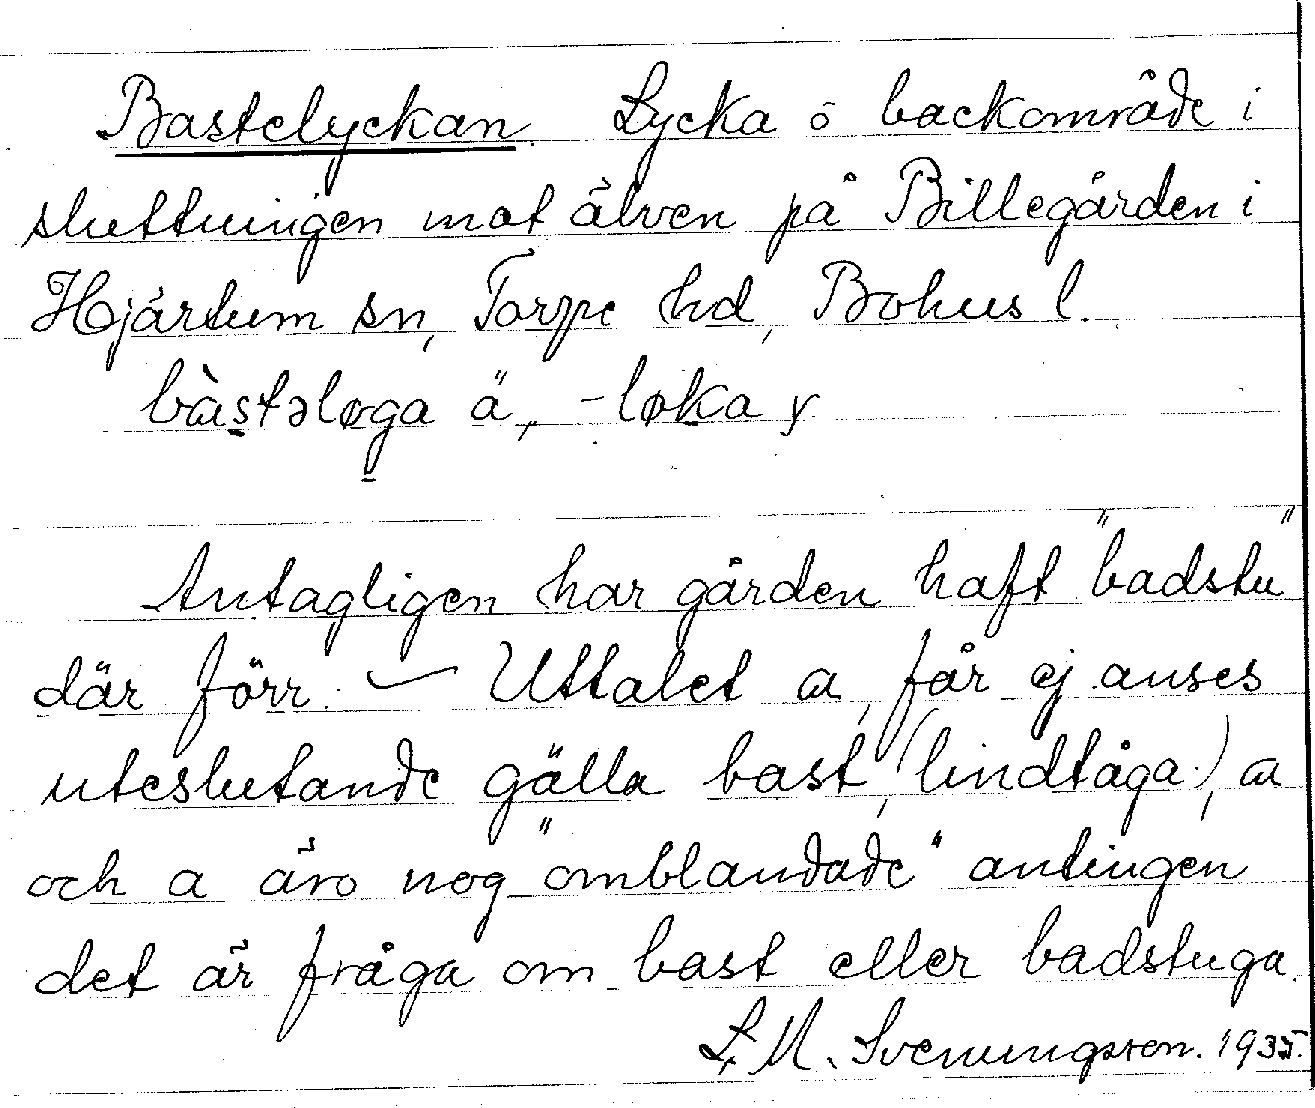 Bastelyckan Lycka ö backområde i
sluttningen mot älven på Billegården i
Hjärtum sn, Torpe hd, Bohus l.
bàstəløga ä, -løka y
Antagligen har gården haft "badstu"
där förr. — Uttalet a, får ej anses
uteslutande gälla bast, (lindtåga), a
och a äro nog "omblandade" antingen
det är fråga om bast eller badstuga.
L. M. Svenungsson. 1935.